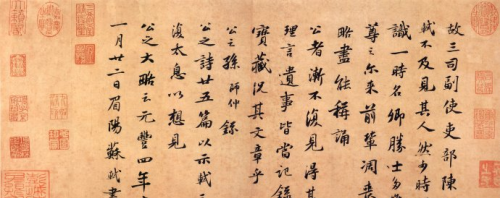 故三司副使吏部陳
軾不及見其人然少時
識一時名卿勝士多推
尊之尔来前輩凋喪
略盡能稱誦
公者漸不復見得其
理言遺事皆當記録
寶藏況其文章乎
公之孫師仲録
公之詩廿五篇以示軾三
復太息以想見
公之大略云元豐四年十
一月廿二日眉陽蘇軾書